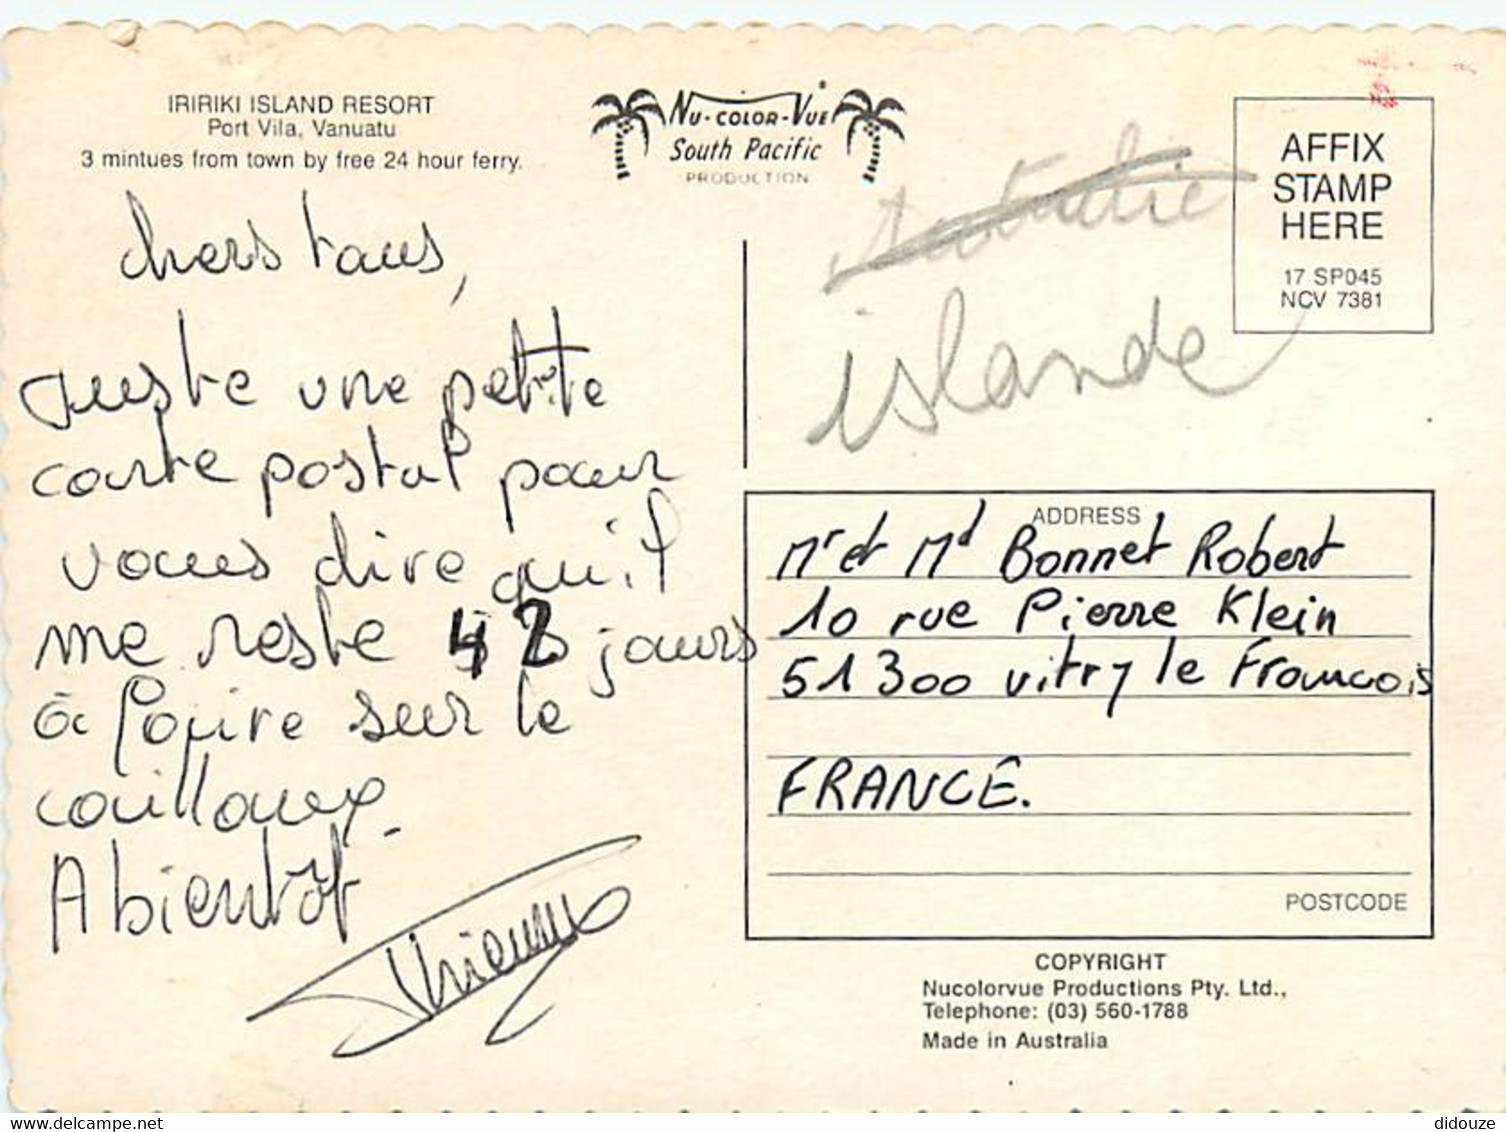 IRIRIKI ISLAND RESORT
Port Vila, Vanuatu
3 mintues from town by free 24 hour ferry.
NU-COLOR-VUE
South Pacific
PRODUCTION
AFFIX
STAMP
HERE
17 SP045
NCV 7381
islande
chers tous,
juste une petite
carte postal pour
vous dire qu'il
me reste 42 jours
à faire sur le
cailloux.
A bientot
Thierry
ADDRESS
Mr et Md Bonnet Robert
10 rue Pierre Klein
51300 vitry le Francois
FRANCE.
POSTCODE
COPYRIGHT
Nucolorvue Productions Pty. Ltd.,
Telephone: (03) 560-1788
Made in Australia
delcampe.net
didouze